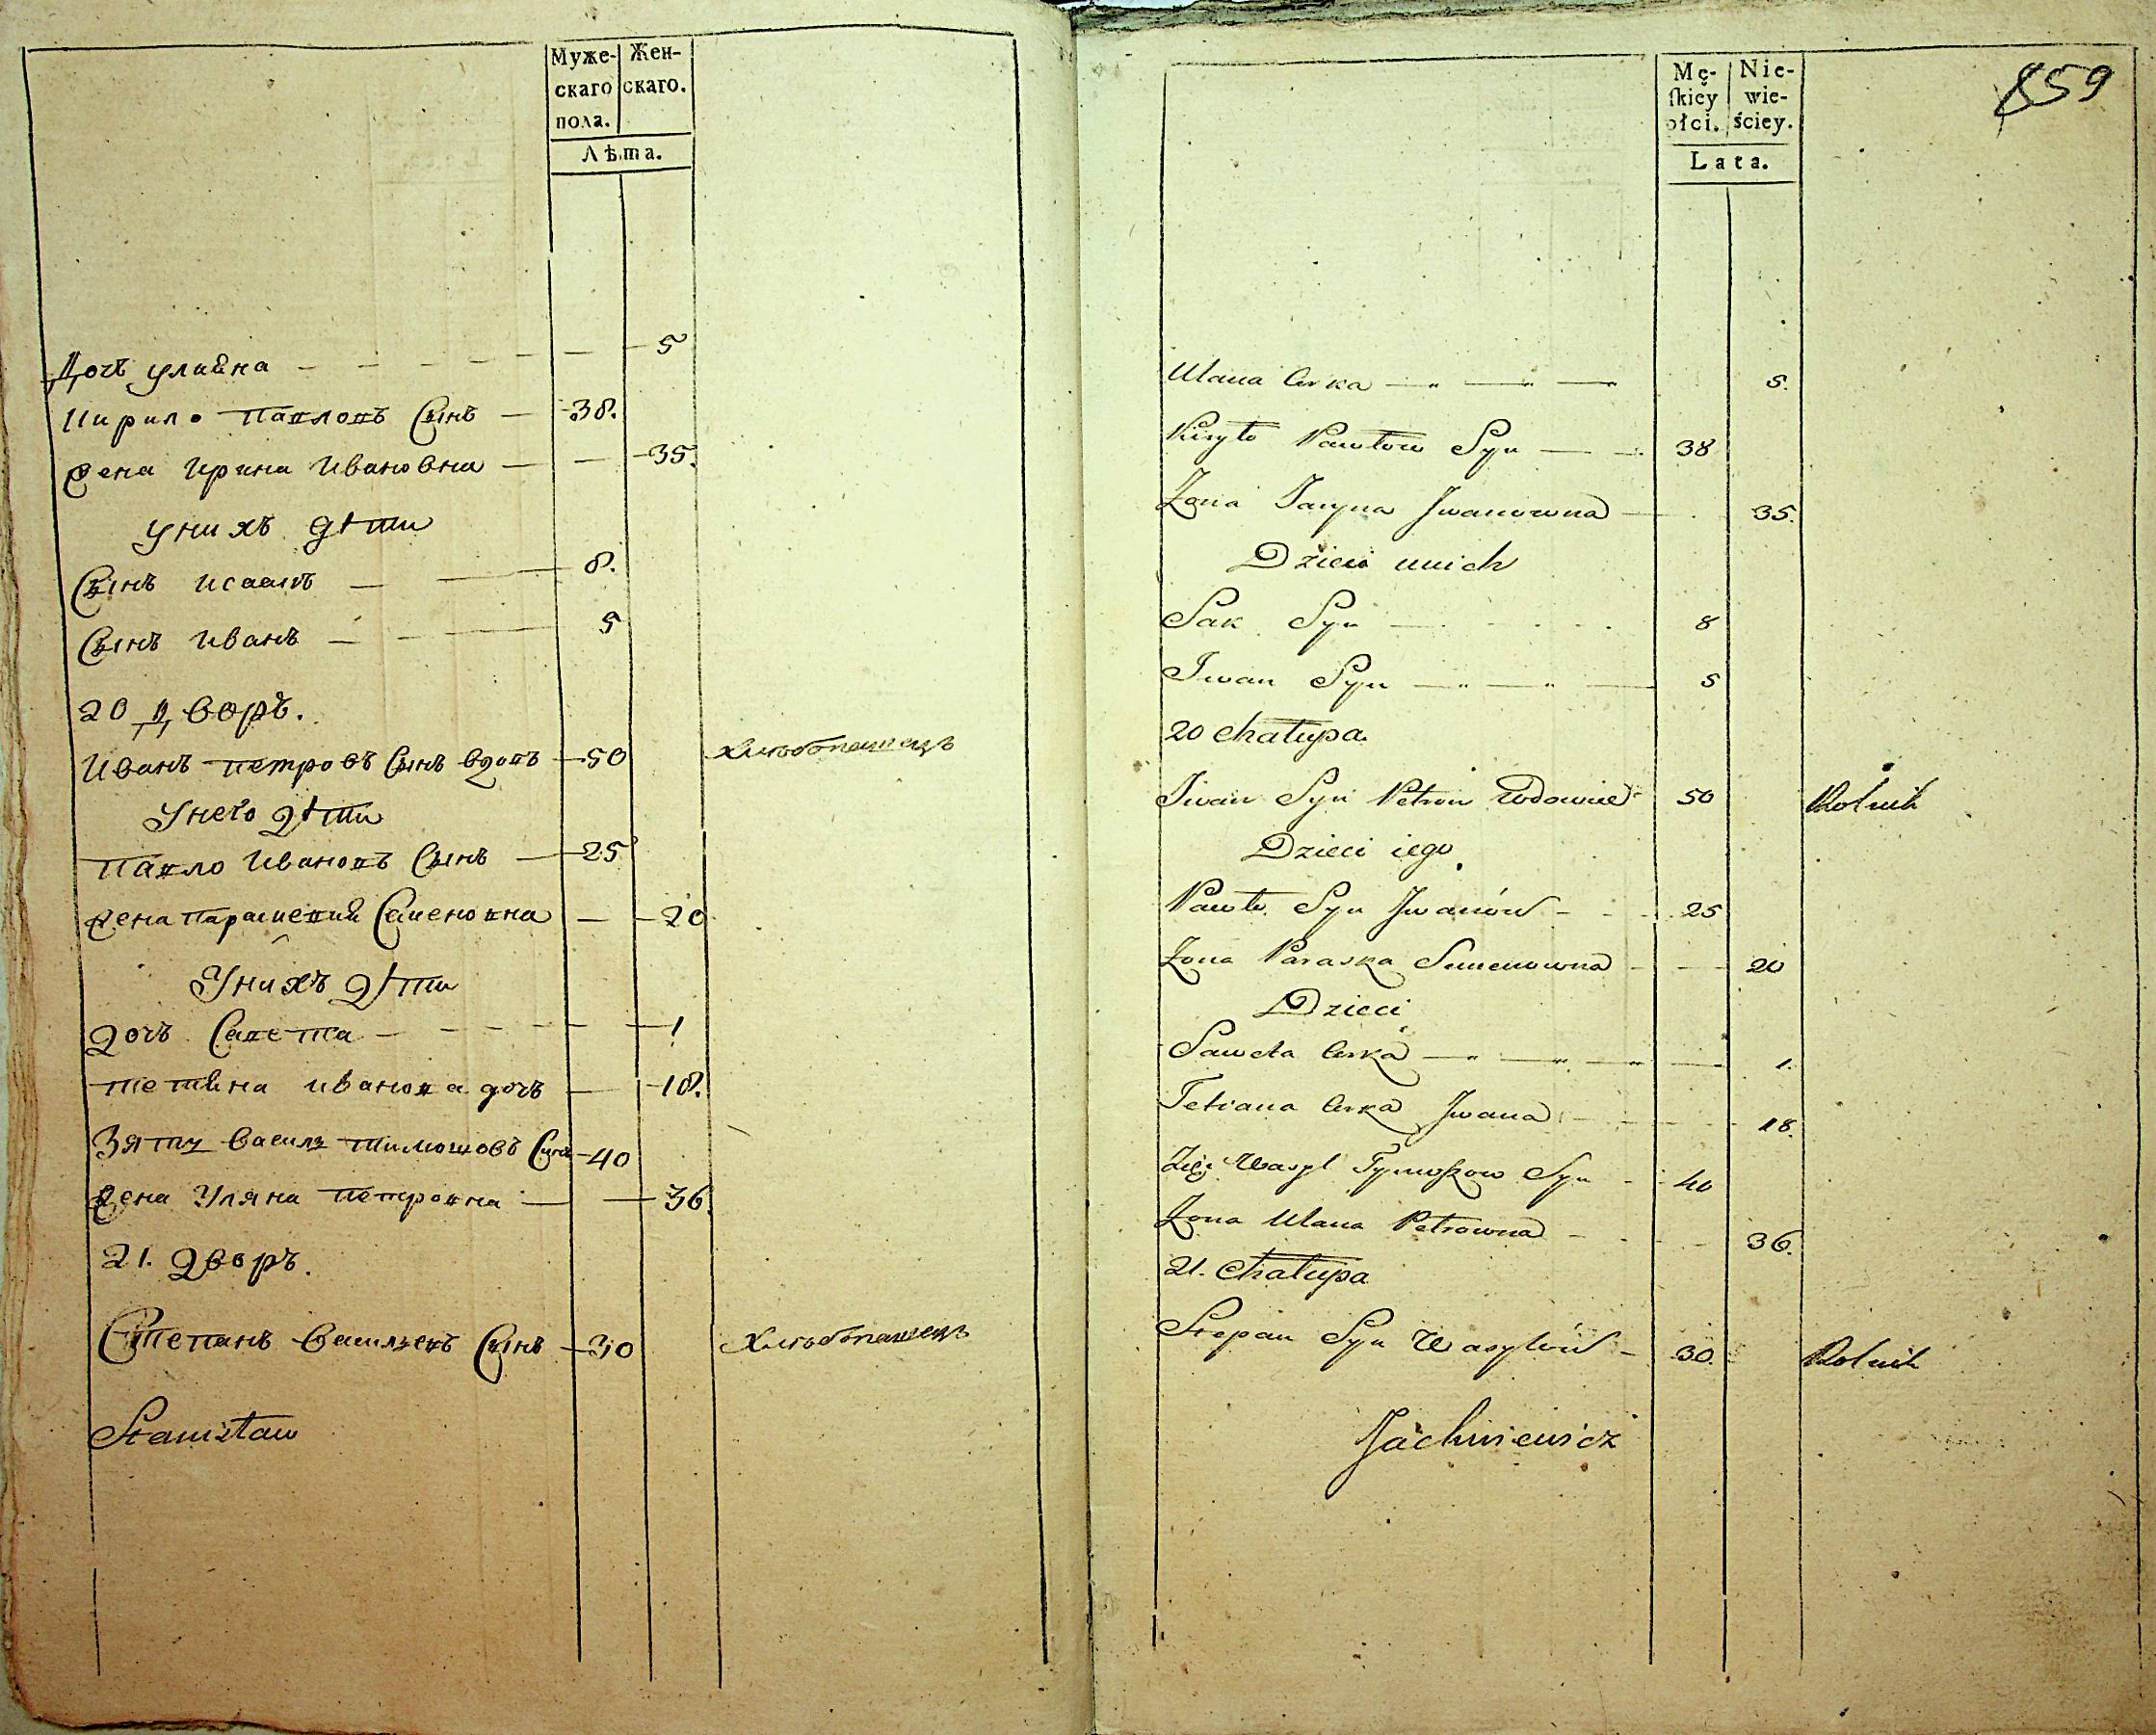 Муже- Жен-
скаго скаго.
пола.
Лѣта.
Дочъ улияна — — — — — — 5
Кирило Павловъ Сынъ — 38.
жена Ирина Ивановна — — 35.
унихъ дѣти
Сынъ исаакъ — — 8.
Сынъ Иванъ — — 5
20 Дворъ.
Иванъ петровъ Сынъ вдовъ — 50 хлѣбопашецъ
Унего дѣти
Павло Ивановъ Сынъ — 25
жена Параскевия Семеновна — — 20
Унихъ дѣти
дочъ Савета — — — — — 1
тетияна иванова дочъ — — 18.
Зять василь тимошовъ Сынъ — 40
жена Уляна петровна — — 36.
21. Дворъ.
Степанъ васильевъ Сынъ — 30 хлѣбопашецъ
Stanisław
859
Mę- Nie-
ſkiey wie-
płci. ściey.
Lata.
Ulana Curka — — — 5.
Kiryło Pawłow Syn — — 38
Żona Jaryna Jwanowna — 35.
Dzieci unich
Sak Syn — 8
Iwan Syn — — — 5
20 Chałupa
Iwan Syn Petrow Wdowiec 50 Rolnik
Dzieci iego
Pawło Syn Jwanów - - 25
Żona Paraska Semenowna - - - 20
Dzieci
Saweta Curka — — — — 1.
Tetiana Curka Jwana - - - 18.
Zięć Wasyl Tymoszow Syn - - 40
Żona Ulana Petrowna - - - 36.
21. Chałupa
Stepan Syn Wasylów — 30. Rolnik
Jachniewicz